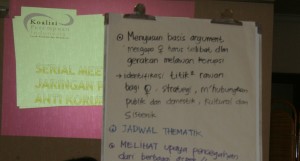 Koalisi
Perempuan
SERIAL MEE
JARINGAN P
ANTI KORU
Menyusun basis argument,
mengapa q harus terlibat dlm
gerakan melawan korupsi
identifikasi titik2 rawan
bagi q. strategi, m'hubungkan
publik dan domestik, kultural dan
sistemik
JADWAL THEMATIK
MELIHAT upaya pencegahan
dan berbagai